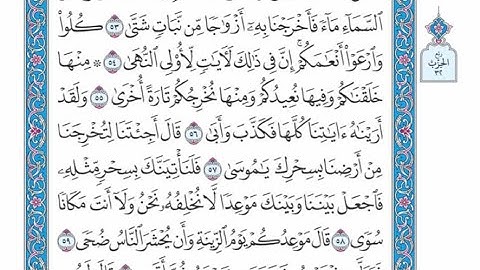 ٱلسَّمَآءِ مَآءً فَأَخۡرَجۡنَا بِهِۦٓ أَزۡوَٰجٗا مِّن نَّبَاتٖ شَتَّىٰ ٥٣ كُلُواْ
وَٱرۡعَوۡاْ أَنۡعَٰمَكُمۡۚ إِنَّ فِي ذَٰلِكَ لَأٓيَٰتٖ لِّأُوْلِي ٱلنُّهَىٰ ٥٤ ۞ مِنۡهَا
خَلَقۡنَٰكُمۡ وَفِيهَا نُعِيدُكُمۡ وَمِنۡهَا نُخۡرِجُكُمۡ تَارَةً أُخۡرَىٰ ٥٥ وَلَقَدۡ
أَرَيۡنَٰهُ ءَايَٰتِنَا كُلَّهَا فَكَذَّبَ وَأَبَىٰ ٥٦ قَالَ أَجِئۡتَنَا لِتُخۡرِجَنَا
مِنۡ أَرۡضِنَا بِسِحۡرِكَ يَٰمُوسَىٰ ٥٧ فَلَنَأۡتِيَنَّكَ بِسِحۡرٖ مِّثۡلِهِۦ
فَٱجۡعَلۡ بَيۡنَنَا وَبَيۡنَكَ مَوۡعِدٗا لَّا نُخۡلِفُهُۥ نَحۡنُ وَلَآ أَنتَ مَكَانٗا
سُوٗى ٥٨ قَالَ مَوۡعِدُكُمۡ يَوۡمُ ٱلزِّينَةِ وَأَن يُحۡشَرَ ٱلنَّاسُ ضُحٗى ٥٩
ربع
الحزب
٣٢